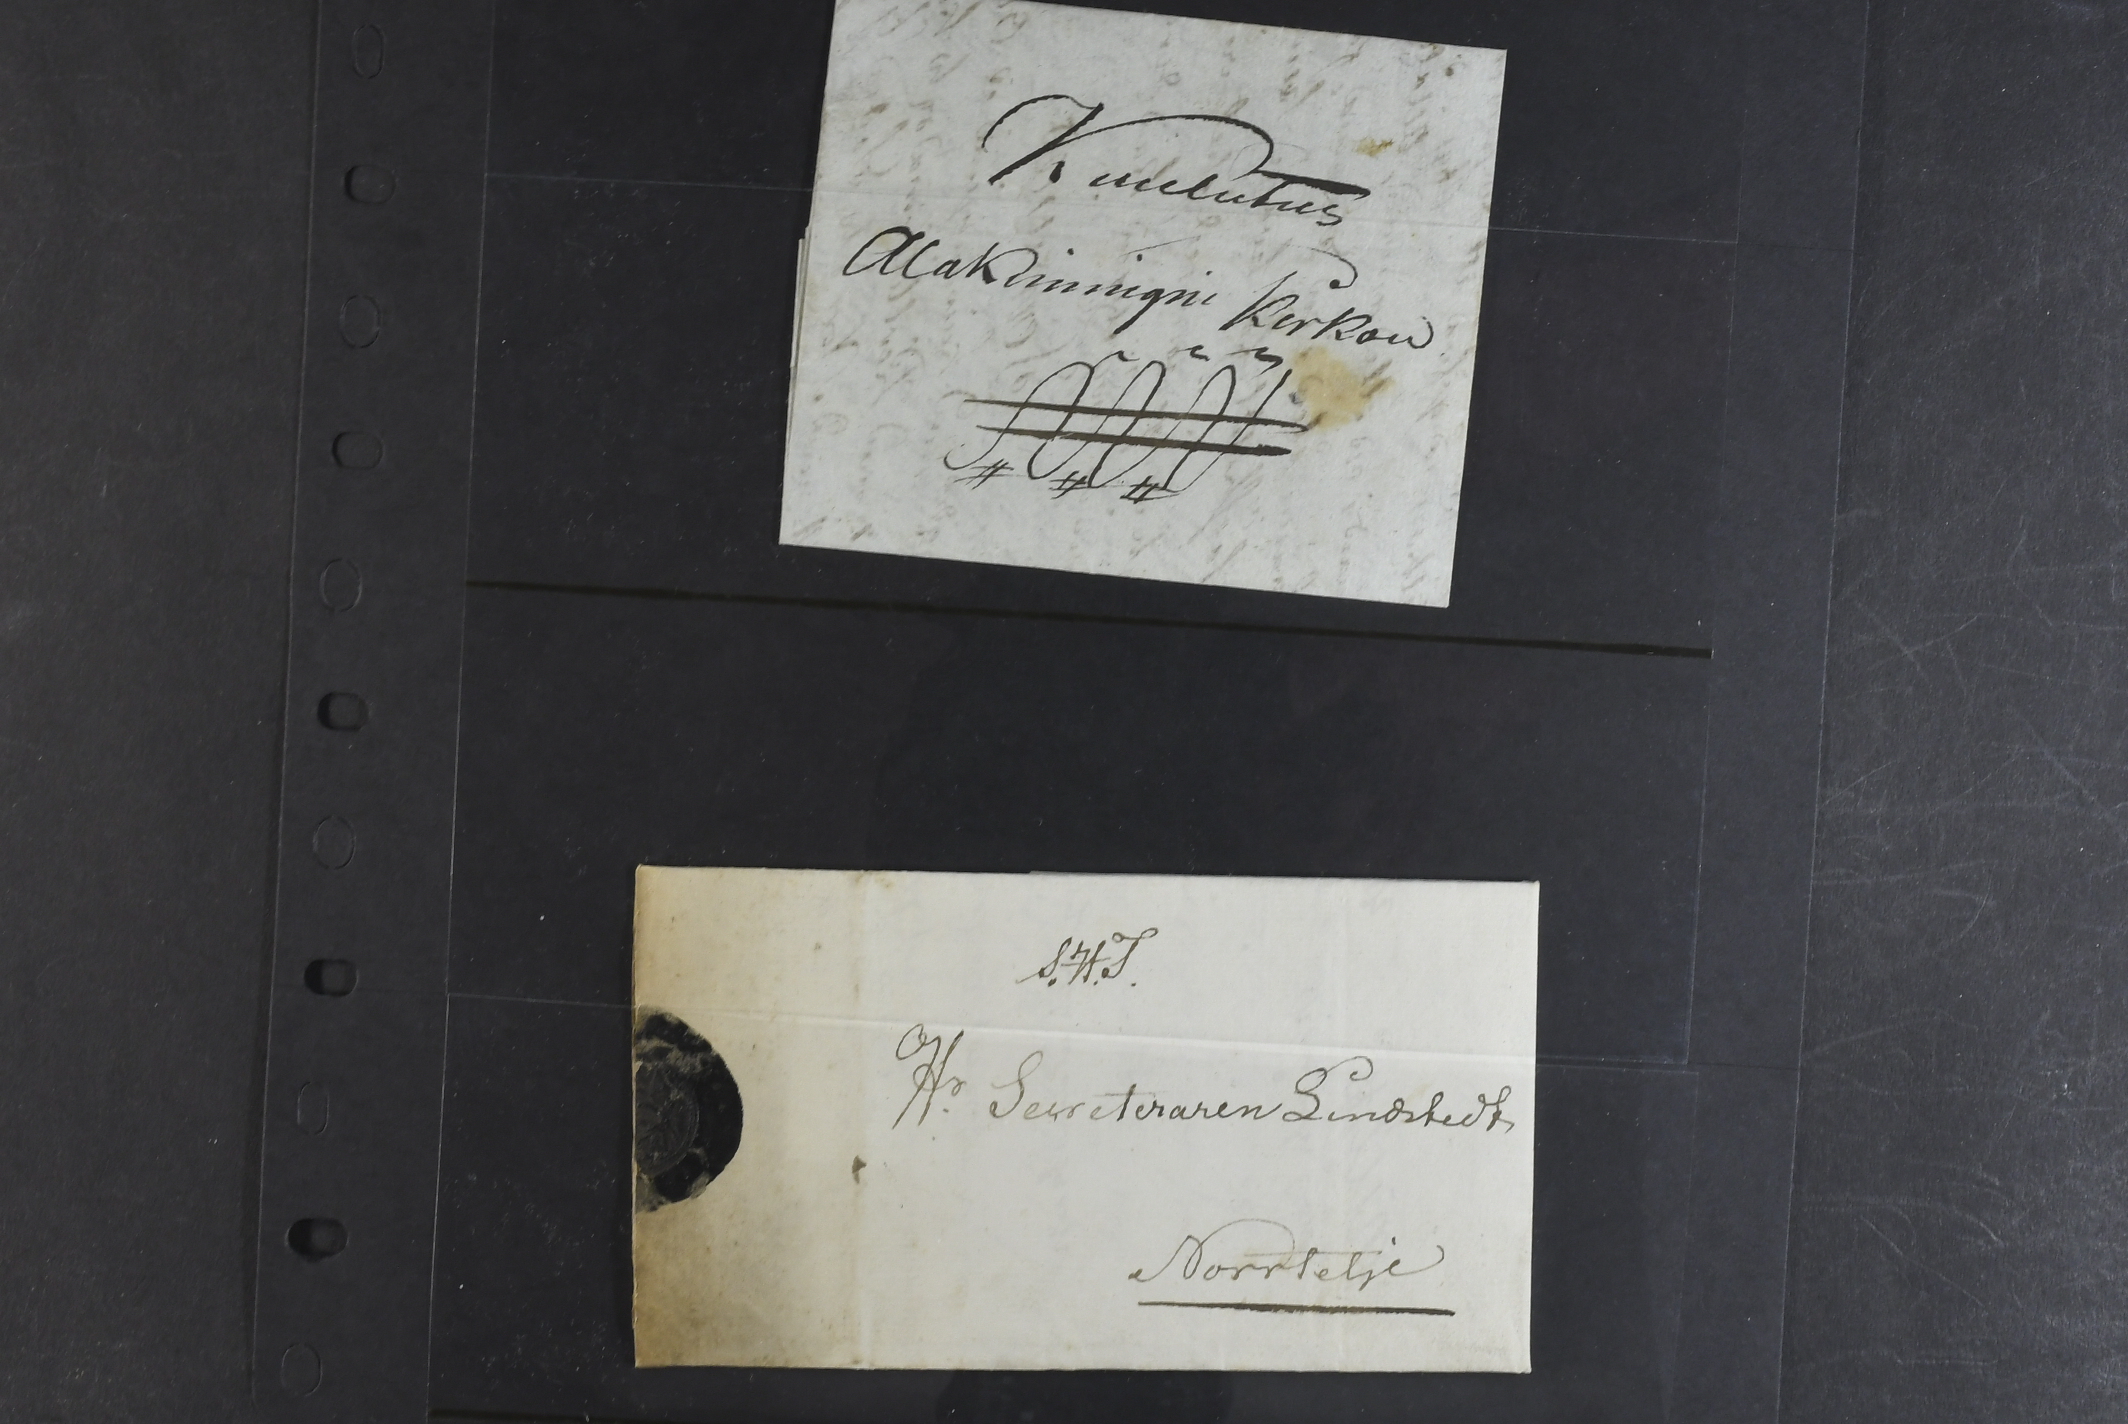 Kuulutus
Alakiimingni Kirkon
S.H.T.
Hr Secreteraren Lindstedt
Norrtelje